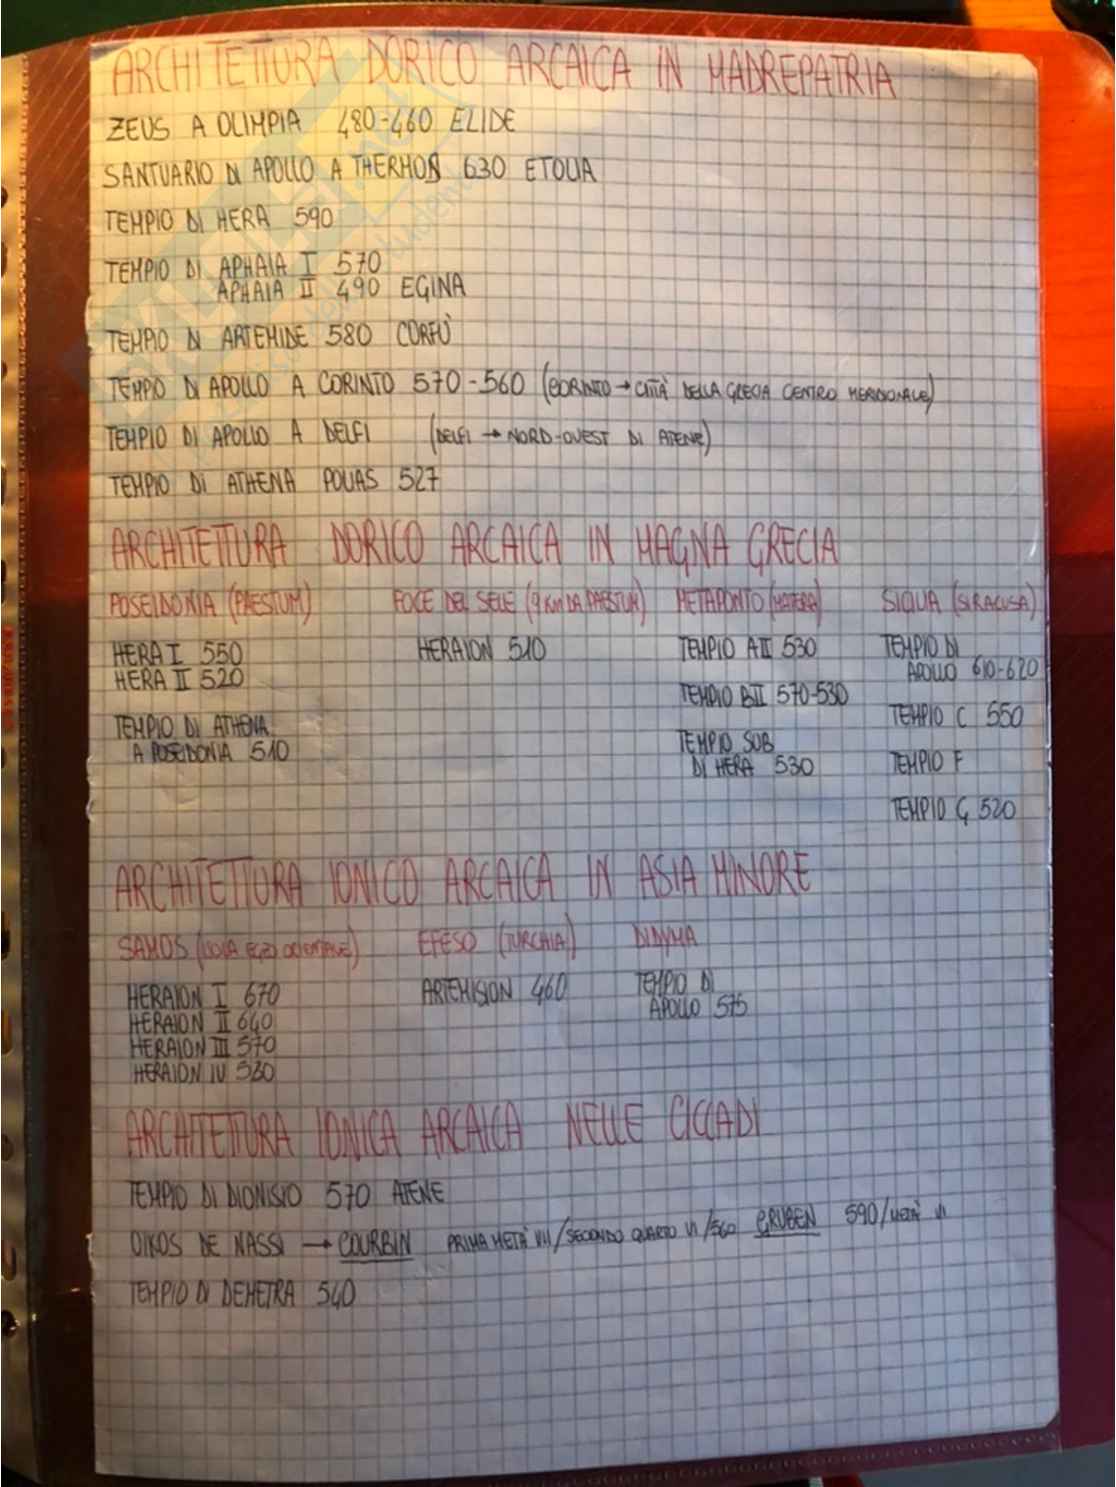 ARCHITETTURA DORICO ARCAICA IN MADREPATRIA
ZEUS A OLIMPIA 480-460 ELIDE
SANTUARIO DI APOLLO A THERMOS 630 ETOLIA
TEMPIO DI HERA 590
TEMPIO DI APHAIA I 570
APHAIA II 490 EGINA
TEMPIO DI ARTEMIDE 580 CORFÙ
TEMPIO DI APOLLO A CORINTO 570-560 (CORINTO → CITTÀ DELLA GRECIA CENTRO MERIDIONALE)
TEMPIO DI APOLLO A DELFI (DELFI → NORD-OVEST DI ATENE)
TEMPIO DI ATHENA POLIAS 527
ARCHITETTURA DORICO ARCAICA IN MAGNA GRECIA
POSEIDONIA (PAESTUM) FOCE DEL SELE (9 KM DA PAESTUM) METAPONTO (MATERA) SICILIA (SIRACUSA)
HERA I 550 HERAION 510 TEMPIO AII 530 TEMPIO DI
HERA II 520 APOLLO 610-620
TEMPIO BII 570-530
TEMPIO DI ATHENA TEMPIO C 550
A POSEIDONIA 510 TEMPIO SUB
DI HERA 530 TEMPIO F
TEMPIO G 520
ARCHITETTURA IONICO ARCAICA IN ASIA MINORE
SAMOS (ISOLA EGEO ORIENTALE) EFESO (TURCHIA) DIDYMA
HERAION I 670 ARTEMISION 460 TEMPIO DI
HERAION II 640 APOLLO 575
HERAION III 570
HERAION IV 530
ARCHITETTURA IONICA ARCAICA NELLE CICLADI
TEMPIO DI DIONISIO 570 ATENE
OIKOS DE NASSI → COURBIN PRIMA METÀ VII/SECONDO QUARTO VI/560 GRUBEN 590/METÀ VI
TEMPIO DI DEMETRA 540